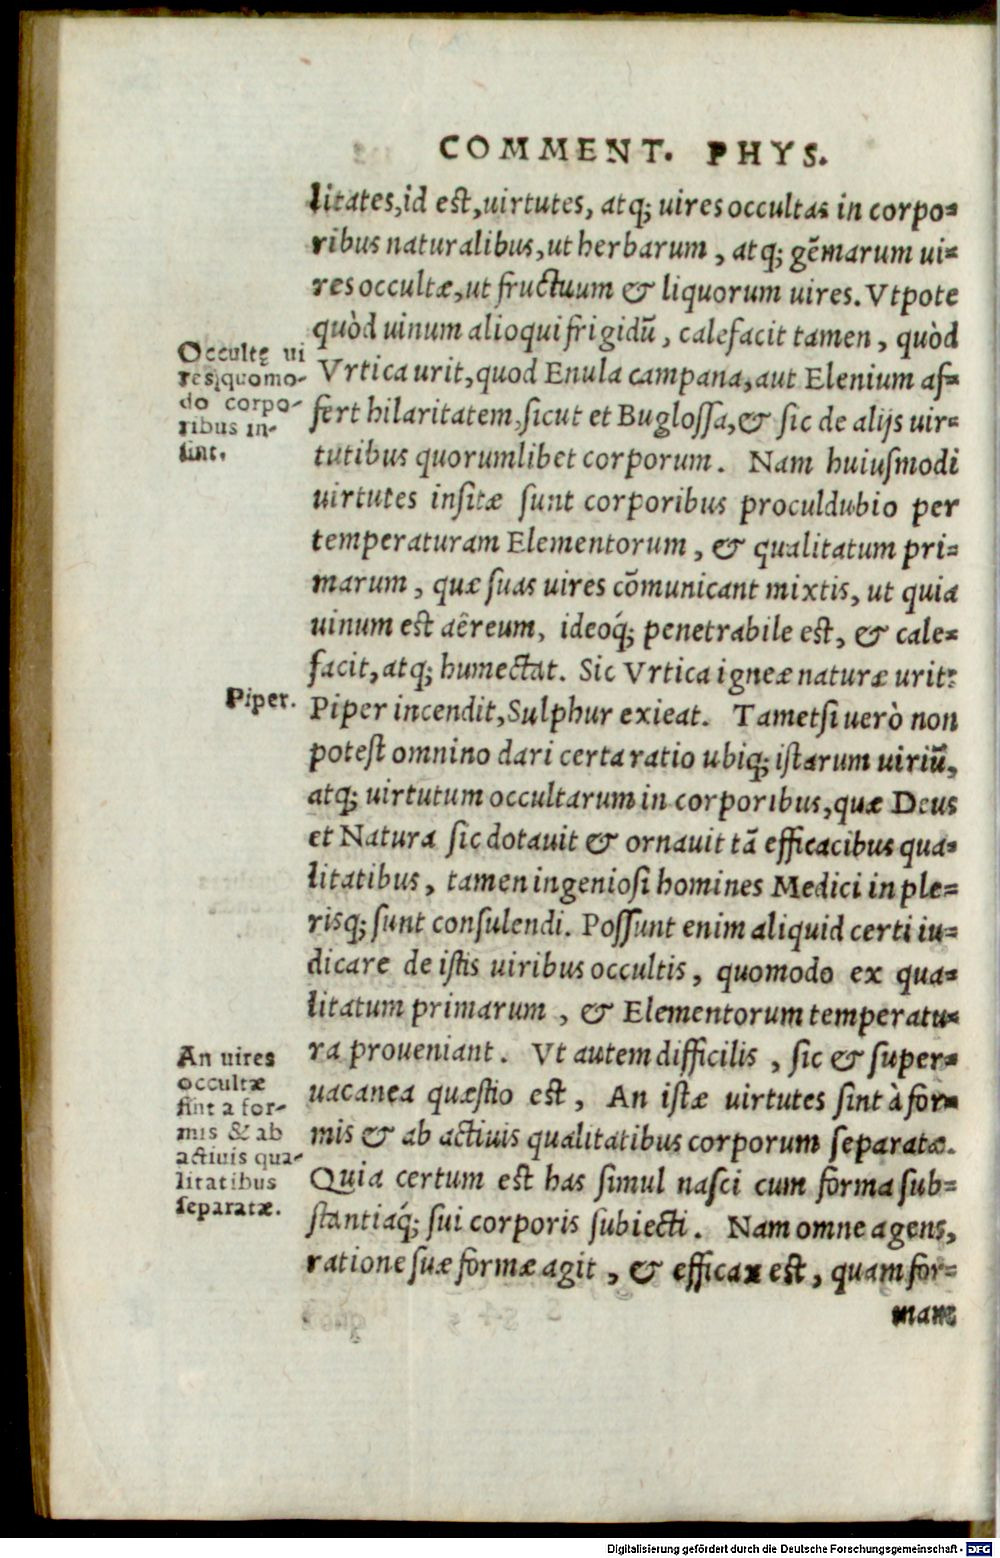 COMMENT. PHYS.
litates, id est, uirtutes, atq; uires occultas in corpo=
ribus naturalibus, ut herbarum, atq; gẽmarum ui=
res occultæ, ut fructuum & liquorum uires. Vtpote
quòd uinum alioqui frigidũ, calefacit tamen, quòd
Vrtica urit, quod Enula campana, aut Elenium af=
fert hilaritatem, sicut et Buglossa, & sic de alijs uir=
tutibus quorumlibet corporum. Nam huiusmodi
uirtutes insitæ sunt corporibus proculdubio per
temperaturam Elementorum, & qualitatum pri=
marum, quæ suas uires cõmunicant mixtis, ut quia
uinum est aêreum, ideoq́; penetrabile est, & cale=
facit, atq; humectat. Sic Vrtica igneæ naturæ urit:
Piper incendit, Sulphur exieat. Tametsi uerò non
potest omnino dari certa ratio ubiq; istarum uiriũ,
atq; uirtutum occultarum in corporibus, quæ Deus
et Natura sic dotauit & ornauit tã efficacibus qua=
litatibus, tamen ingeniosi homines Medici in ple=
risq; sunt consulendi. Possunt enim aliquid certi iu=
dicare de istis uiribus occultis, quomodo ex qua=
litatum primarum, & Elementorum temperatu=
ra proueniant. Vt autem difficilis, sic & super=
uacanea quæstio est, An istæ uirtutes sint à for=
mis & ab actiuis qualitatibus corporum separatæ.
Quia certum est has simul nasci cum forma sub=
stantiaq́; sui corporis subiecti. Nam omne agens,
ratione suæ formæ agit, & efficax est, quam for=
mam
Occultę ui
res, quomo-
do corpo-
ribus in-
sint.
Piper.
An uires
occultæ
sint a for-
mis & ab
actiuis qua-
litatibus
separatæ.
Digitalisierung gefördert durch die Deutsche Forschungsgemeinschaft - DFG